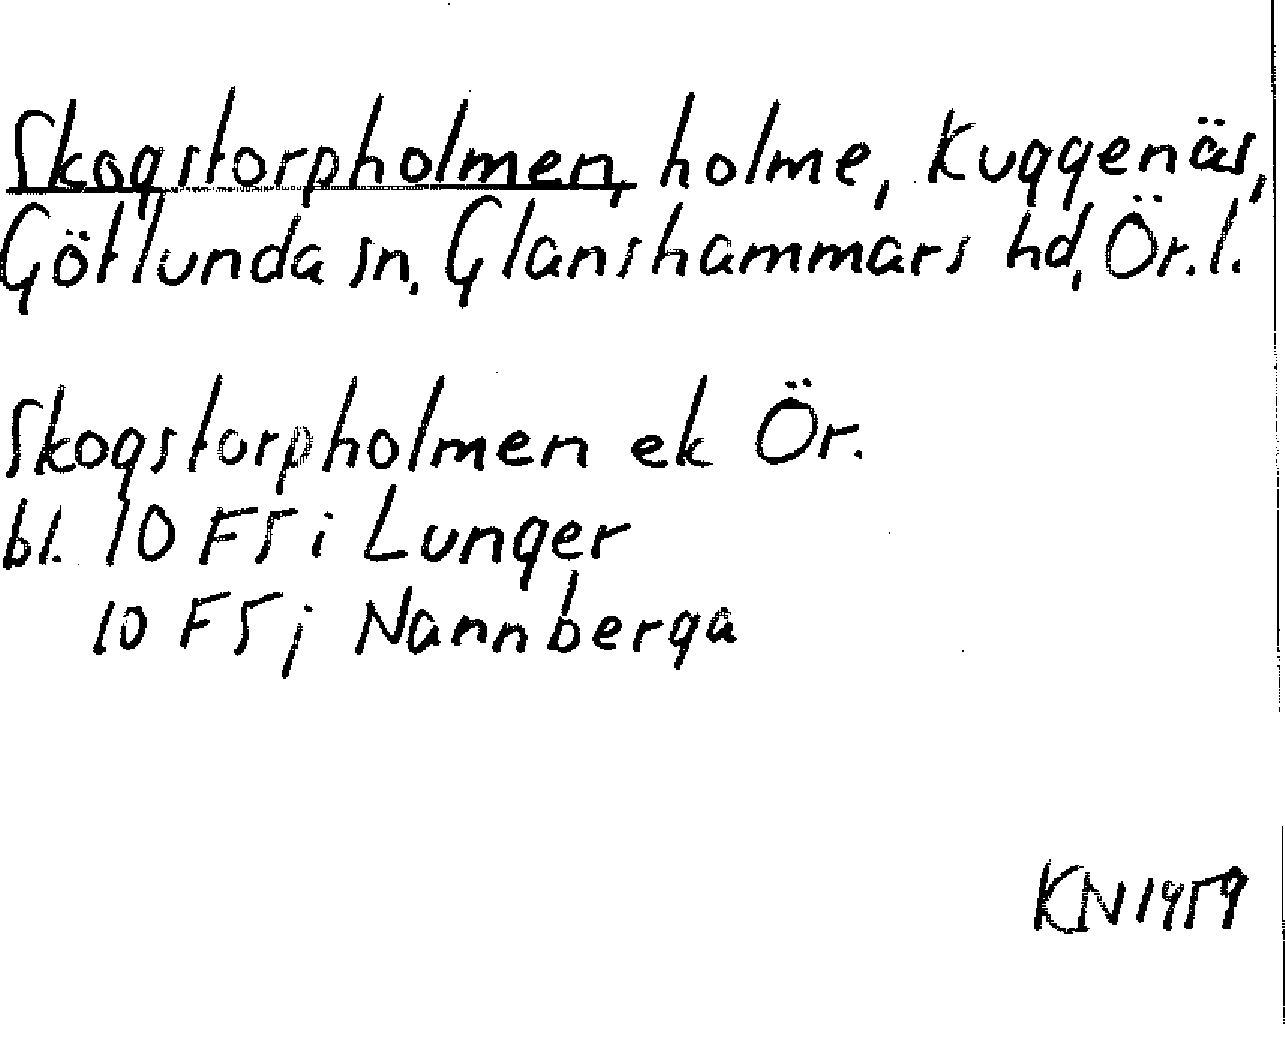 Skogstorpholmen, holme, Kuggenäs,
Götlunda sn, Glanshammars hd, Ör.l.
Skogstorpholmen ek Ör.
bl. 10 F5 i Lunger
10 F5 i Nannberga
KN 1959